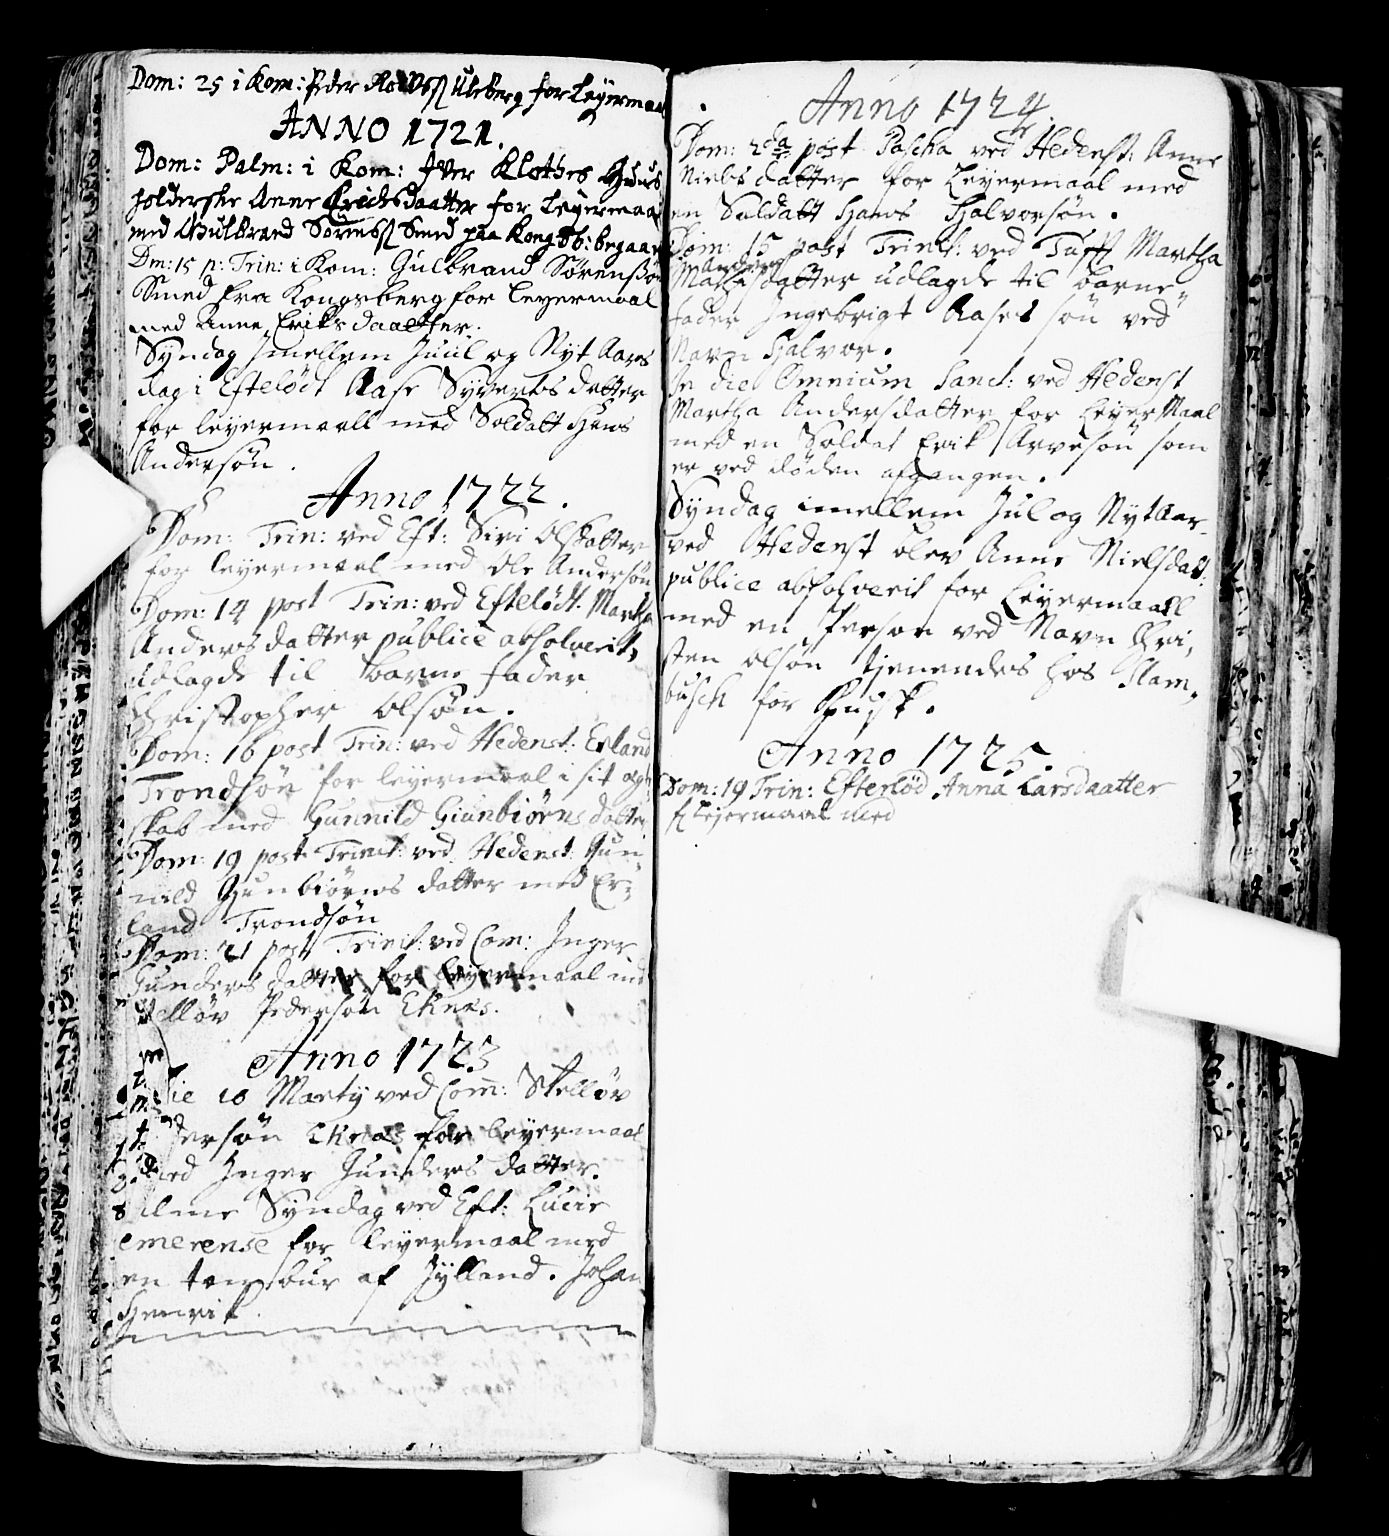 Dom: 25 i Kom: Peder Uleberg for Leyermaal
ANNO 1721.
Dom: Palm: i Kom: Iver Klothes Huus
holderske Anne Erichsdaatter for Leyermaal
med Gulbrand Sørenss Smed paa Kongsb: begaaet
Dm: 15 p: Trin: i Kom: Gulbrand Sørenssøn
Smed fra Kongsberg for Leyermaal
med Anne Eriks daatter.
Syndag Imellem Juul og Nyt Aars
dag i Eftelødt Aase Syverts datter
for leyermaall med Soldatt Hans
Andersøn.
Anno 1722.
Dom: Trin: ved Eft: Siri Olsdatter
for leyermaal med Ole Andersøn
Dom: 14 post Trin: ved Eftelødt. Martha
Anders datter publice absolverit,
udlagde til barne fader
Christopher Olsøn.
Dom: 16 post Trin: ved Hedenst: Erland
Trondsøn for leyermaal i sit ægte
skab med Gunnild Giunbiørns datter
Dom: 19 post Trinit: ved Hedenst: Gun
nild Gunbiørns datter med Er=
land Trondsøn
Dom: 21 post Trinit: ved Com: Inger
Gunders datter for leyermaal med
Stelløv Pedersøn Eknes.
Anno 1723
Die 10 Martij ved Com: Stelløv
Pedersøn Eknes for leyermaal
med Inger Gunders datter.
Palme Syndag ved Eft: Lucie
emerense for leyermaal med
en tambur af Jylland. Johan
Henrik.
Anno 1724.
Dom: 2da post Pascha ved Hedenst: Anne
Niels datter for Leyermaal med
en Soldatt Hans Halvorsøn.
Dom: 15 post Trinit: ved Tufft Martha
Anders
datter udlagde til barne
fader Ingebrigt Aases søn ved
Navn Halvor.
In die Omnium Sanct: ved Hedenst
Martha Andersdatter for LeyerMaal
med en Soldat Erik Arvesøn som
er ved døden afgangen.
Syndag imellem Jul og NytAar
ved Hedenst blev Anne Nielsdat.
publice absolverit for Leyermaall
med en Person ved Navn Chri,
sten Olsøn tienendes hos Slam,
busch for Kusk.
Anno 1725.
Dom: 19 Trin: Efterlød Anna Larsdaatter
f Lejermaal med